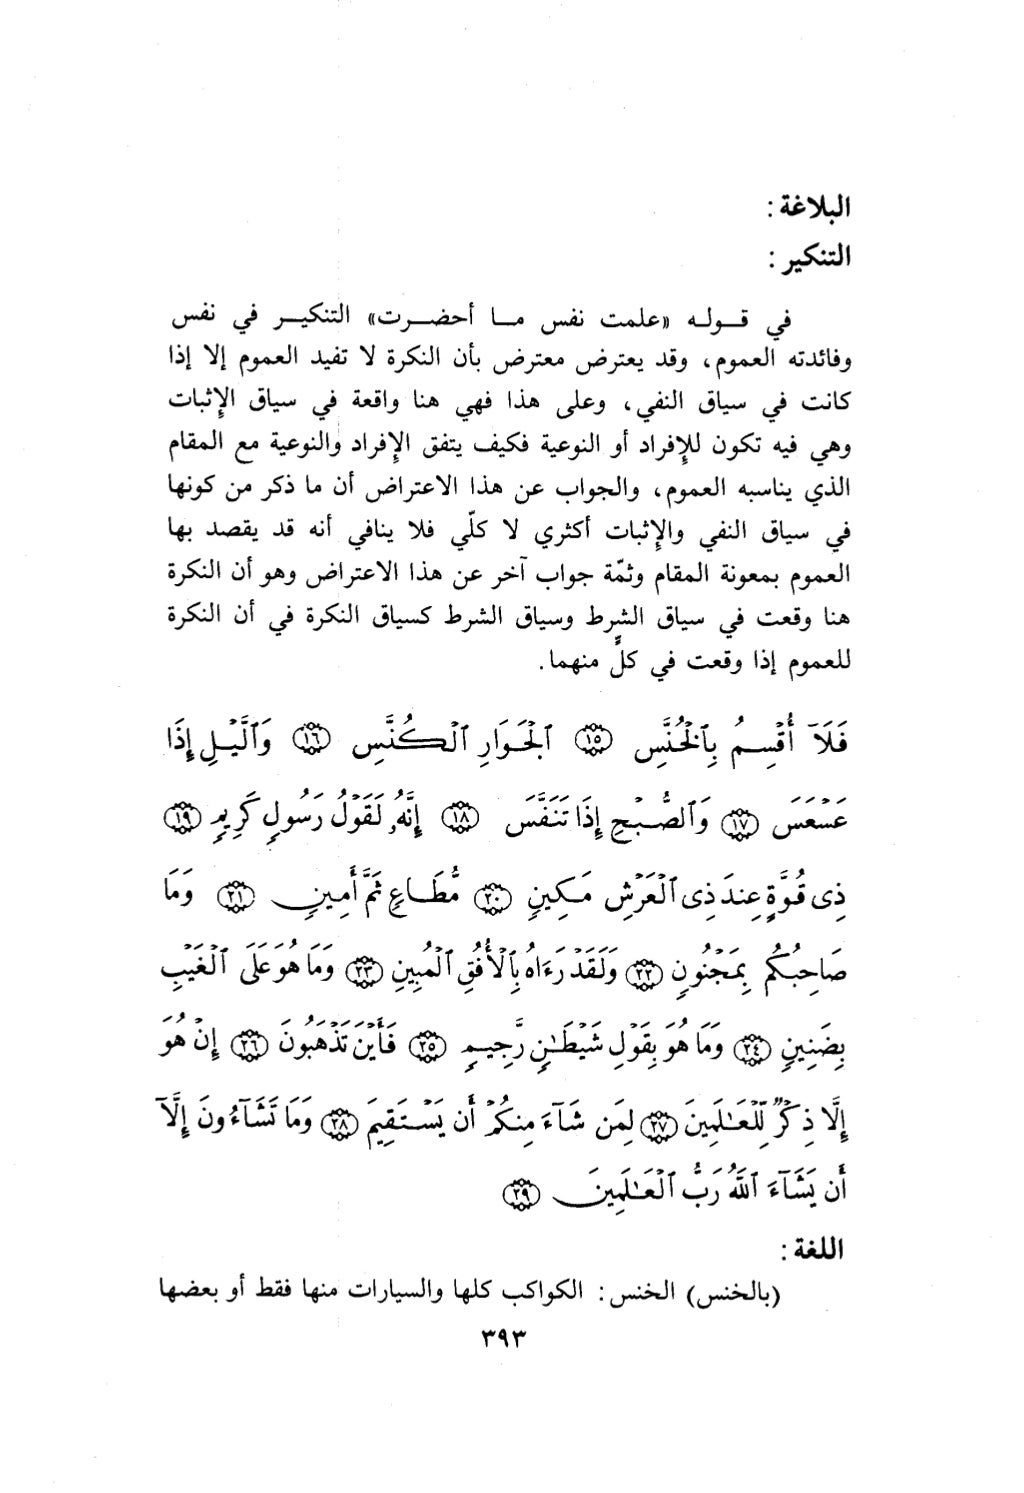 البلاغة :
التنكير :
في قوله «علمت نفس ما أحضرت» التنكير في نفس
وفائدته العموم، وقد يعترض معترض بأن النكرة لا تفيد العموم إلا إذا
كانت في سياق النفي، وعلى هذا فهي هنا واقعة في سياق الإثبات
وهي فيه تكون للإفراد أو النوعية فكيف يتفق الإفراد والنوعية مع المقام
الذي يناسبه العموم، والجواب عن هذا الاعتراض أن ما ذكر من كونها
في سياق النفي والإثبات أكثري لا كلّي فلا ينافي أنه قد يقصد بها
العموم بمعونة المقام وثمّة جواب آخر عن هذا الاعتراض وهو أن النكرة
هنا وقعت في سياق الشرط وسياق الشرط كسياق النكرة في أن النكرة
للعموم إذا وقعت في كلٍّ منهما.
فَلَآ أُقْسِمُ بِٱلْخُنَّسِ ١٥ ٱلْجَوَارِ ٱلْكُنَّسِ ١٦ وَٱلَّيْلِ إِذَا
عَسْعَسَ ١٧ وَٱلصُّبْحِ إِذَا تَنَفَّسَ ١٨ إِنَّهُۥ لَقَوْلُ رَسُولٍ كَرِيمٍ ١٩
ذِى قُوَّةٍ عِندَ ذِى ٱلْعَرْشِ مَكِينٍ ٢٠ مُّطَاعٍ ثَمَّ أَمِينٍ ٢١ وَمَا
صَاحِبُكُم بِمَجْنُونٍ ٢٢ وَلَقَدْ رَءَاهُ بِٱلْأُفُقِ ٱلْمُبِينِ ٢٣ وَمَا هُوَ عَلَى ٱلْغَيْبِ
بِضَنِينٍ ٢٤ وَمَا هُوَ بِقَوْلِ شَيْطَٰنٍ رَّجِيمٍ ٢٥ فَأَيْنَ تَذْهَبُونَ ٢٦ إِنْ هُوَ
إِلَّا ذِكْرٌ لِّلْعَٰلَمِينَ ٢٧ لِمَن شَآءَ مِنكُمْ أَن يَسْتَقِيمَ ٢٨ وَمَا تَشَآءُونَ إِلَّآ
أَن يَشَآءَ ٱللَّهُ رَبُّ ٱلْعَٰلَمِينَ ٢٩
اللغة :
(بالخنس) الخنس: الكواكب كلها والسيارات منها فقط أو بعضها
٣٩٣